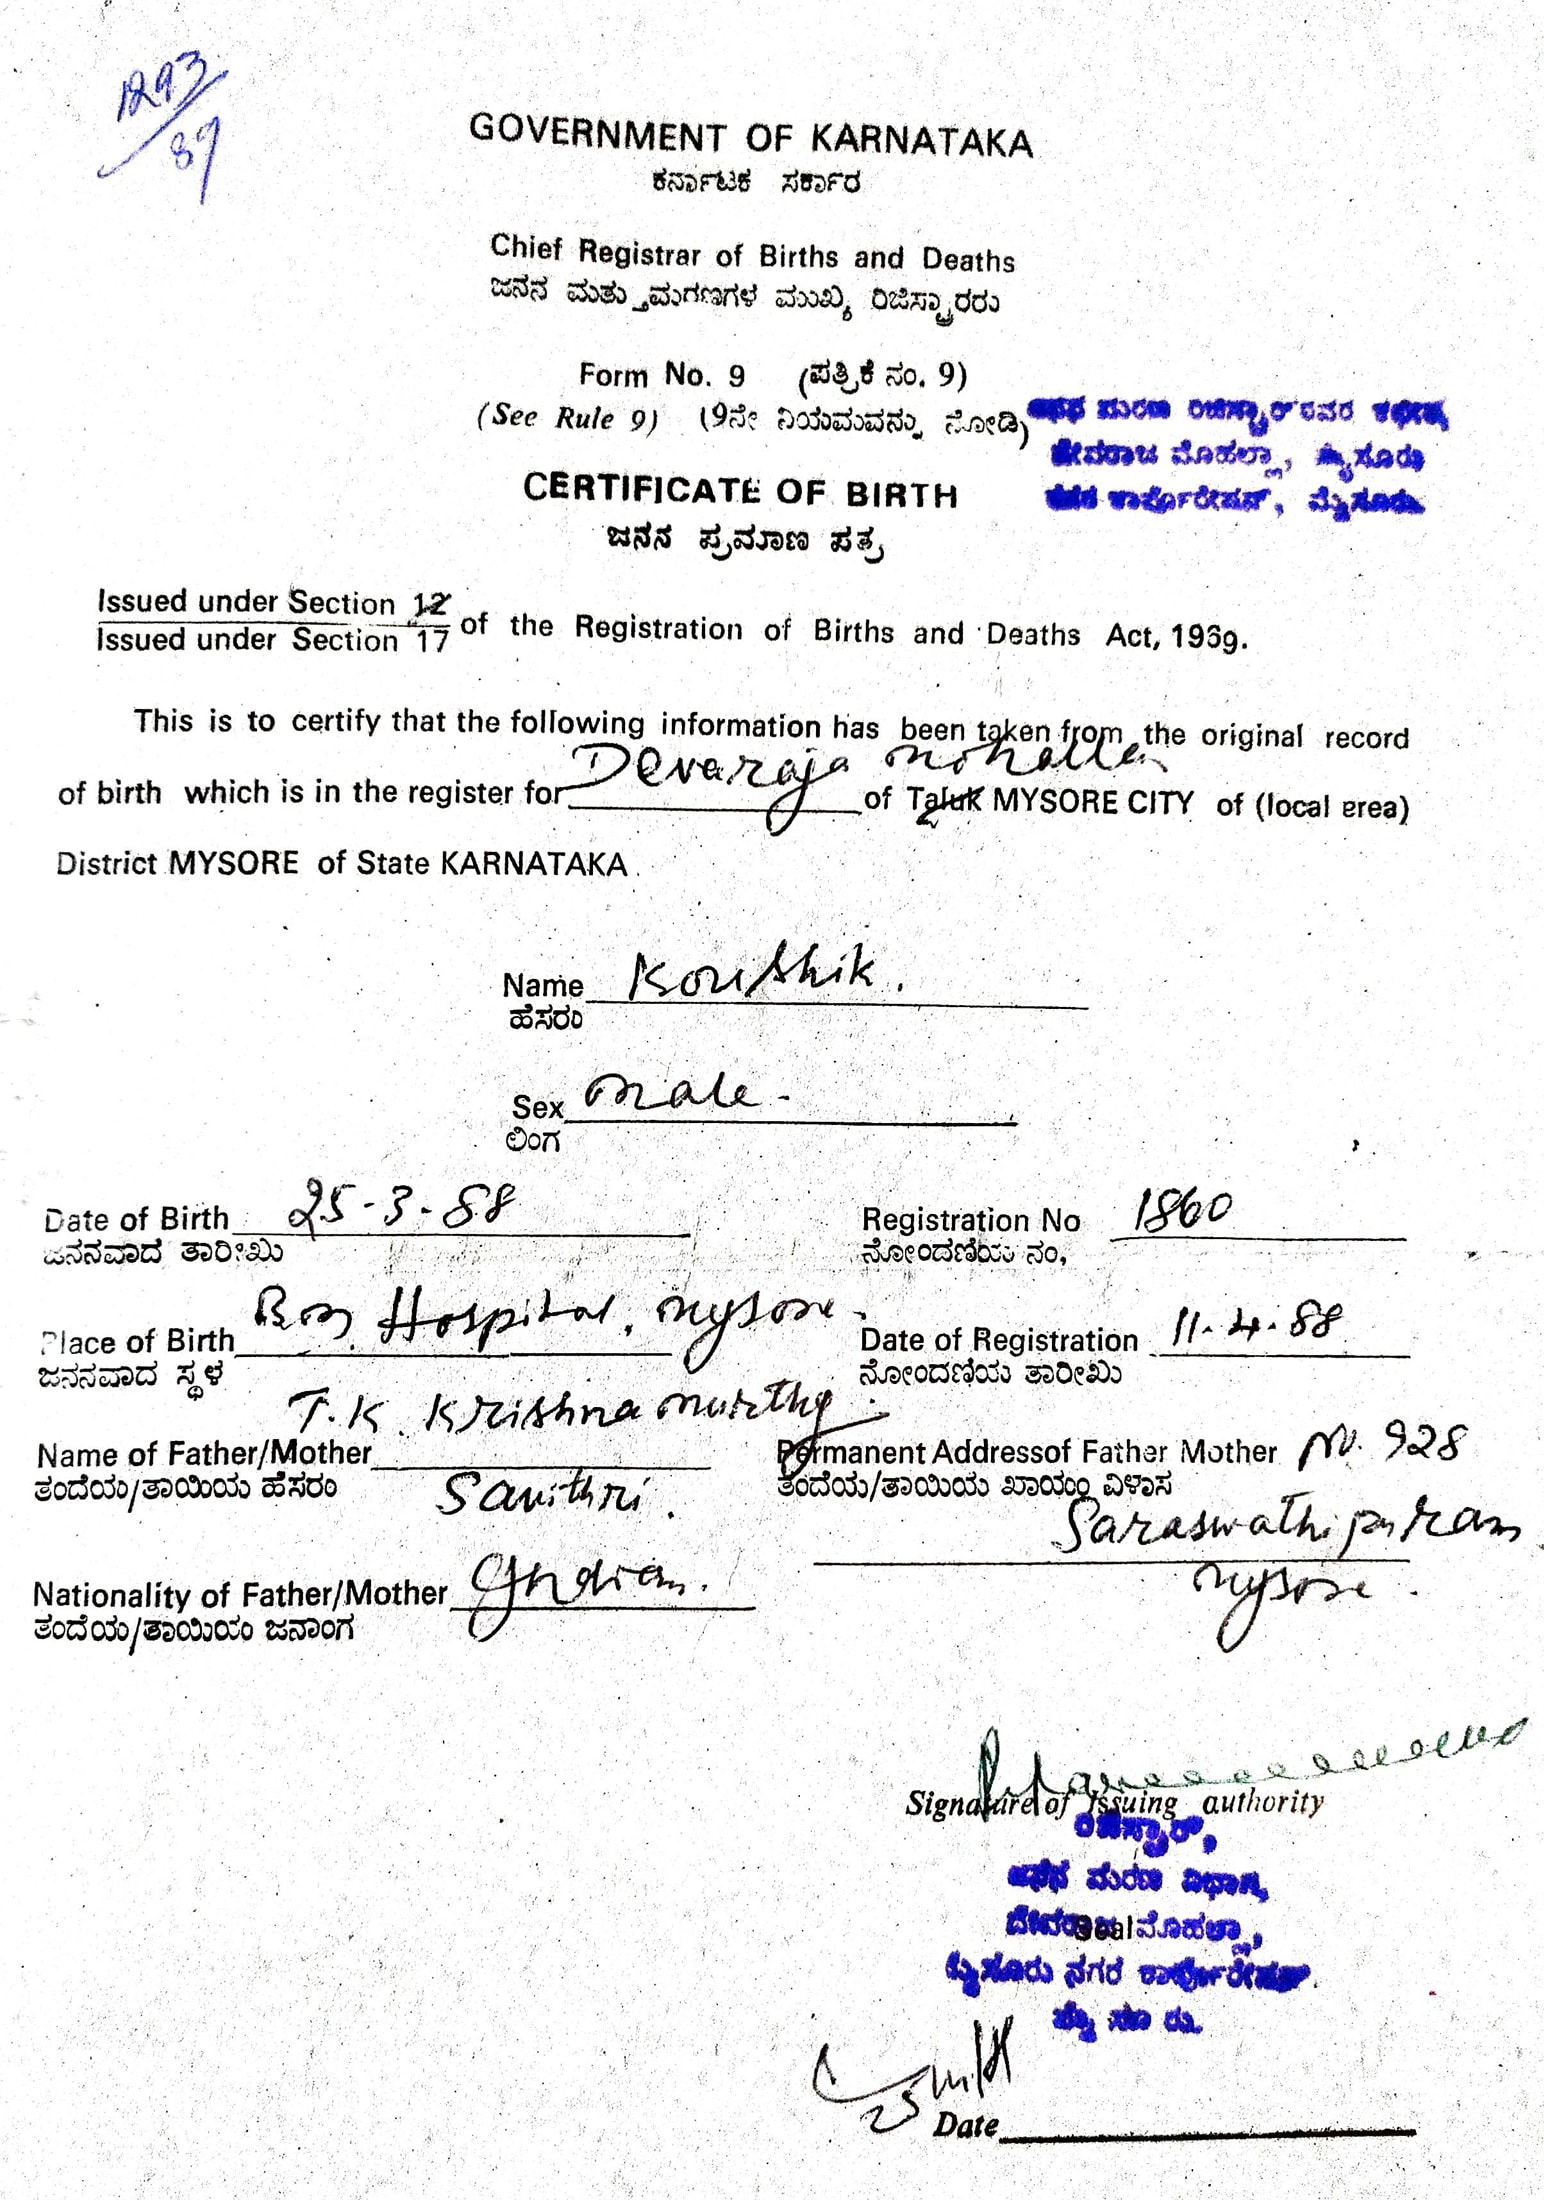 1293/89
GOVERNMENT OF KARNATAKA
ಕರ್ನಾಟಕ ಸರ್ಕಾರ
Chief Registrar of Births and Deaths
ಜನನ ಮತ್ತು ಮರಣಗಳ ಮುಖ್ಯ ರಿಜಿಸ್ಟ್ರಾರರು
Form No. 9 (ಪತ್ರಿಕೆ ನಂ. 9)
(See Rule 9) (9ನೇ ನಿಯಮವನ್ನು ನೋಡಿ)
ಜನನ ಮರಣ ರಿಜಿಸ್ಟ್ರಾರ್ ರವರ ಕಛೇರಿ
ದೇವರಾಜ ಮೊಹಲ್ಲಾ, ಮೈಸೂರು
ನಗರ ಕಾರ್ಪೋರೇಷನ್, ಮೈಸೂರು.
CERTIFICATE OF BIRTH
ಜನನ ಪ್ರಮಾಣ ಪತ್ರ
Issued under Section 12
Issued under Section 17 of the Registration of Births and Deaths Act, 1969.
This is to certify that the following information has been taken from the original record
of birth which is in the register for Devaraja Mohalla of Taluk MYSORE CITY of (local area)
District MYSORE of State KARNATAKA.
Name Koushik.
ಹೆಸರು
Sex Male -
ಲಿಂಗ
Date of Birth 25-3-88 Registration No 1860
ಜನನವಾದ ತಾರೀಖು ನೋಂದಣಿಯ ನಂ,
Place of Birth Hospital, Mysore - Date of Registration 11-4-88
ಜನನವಾದ ಸ್ಥಳ ನೋಂದಣಿಯ ತಾರೀಖು
Name of Father/Mother T.K. Krishnamurthy Permanent Addressof Father Mother No. 928
ತಂದೆಯ/ತಾಯಿಯ ಹೆಸರು Savithri. ತಂದೆಯ/ತಾಯಿಯ ಖಾಯಂ ವಿಳಾಸ
Saraswathipuram
Nationality of Father/Mother Indian. Mysore.
ತಂದೆಯ/ತಾಯಿಯ ಜನಾಂಗ
Signature of Issuing authority
ರಿಜಿಸ್ಟ್ರಾರ್,
ಜನನ ಮರಣ ವಿಭಾಗ,
ದೇವರಾಜ ಮೊಹಲ್ಲಾ,
Seal
ಮೈಸೂರು ನಗರ ಕಾರ್ಪೋರೇಷನ್
ಮೈ ಸೂ ರು.
Date